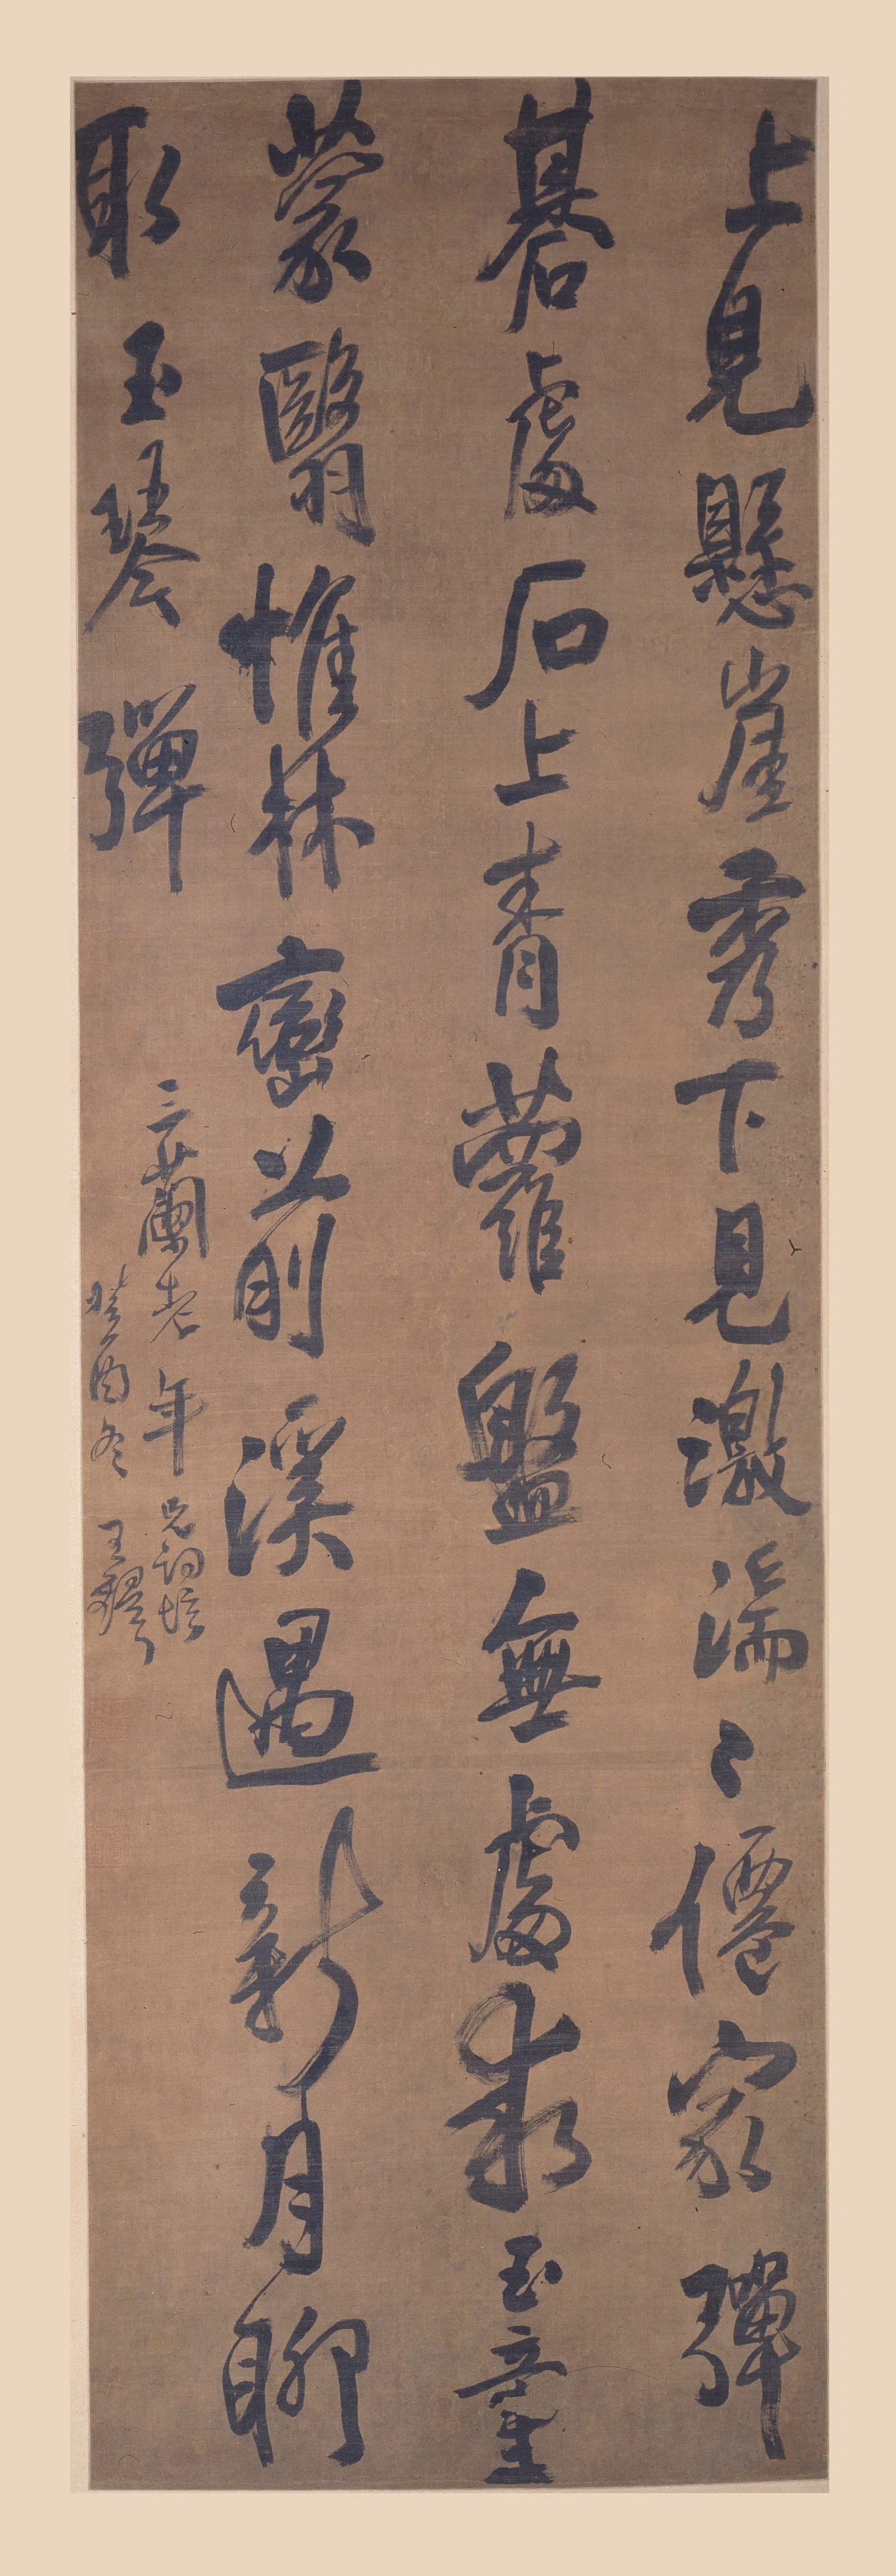 上見懸崖秀下見激湍〻僊家彈
碁處石上青蘿盤無處尋玉童
蒙翳惟林巒前溪遇新月聊
取玉琴彈
三蘭老年兄詞壇
癸酉冬王鐸